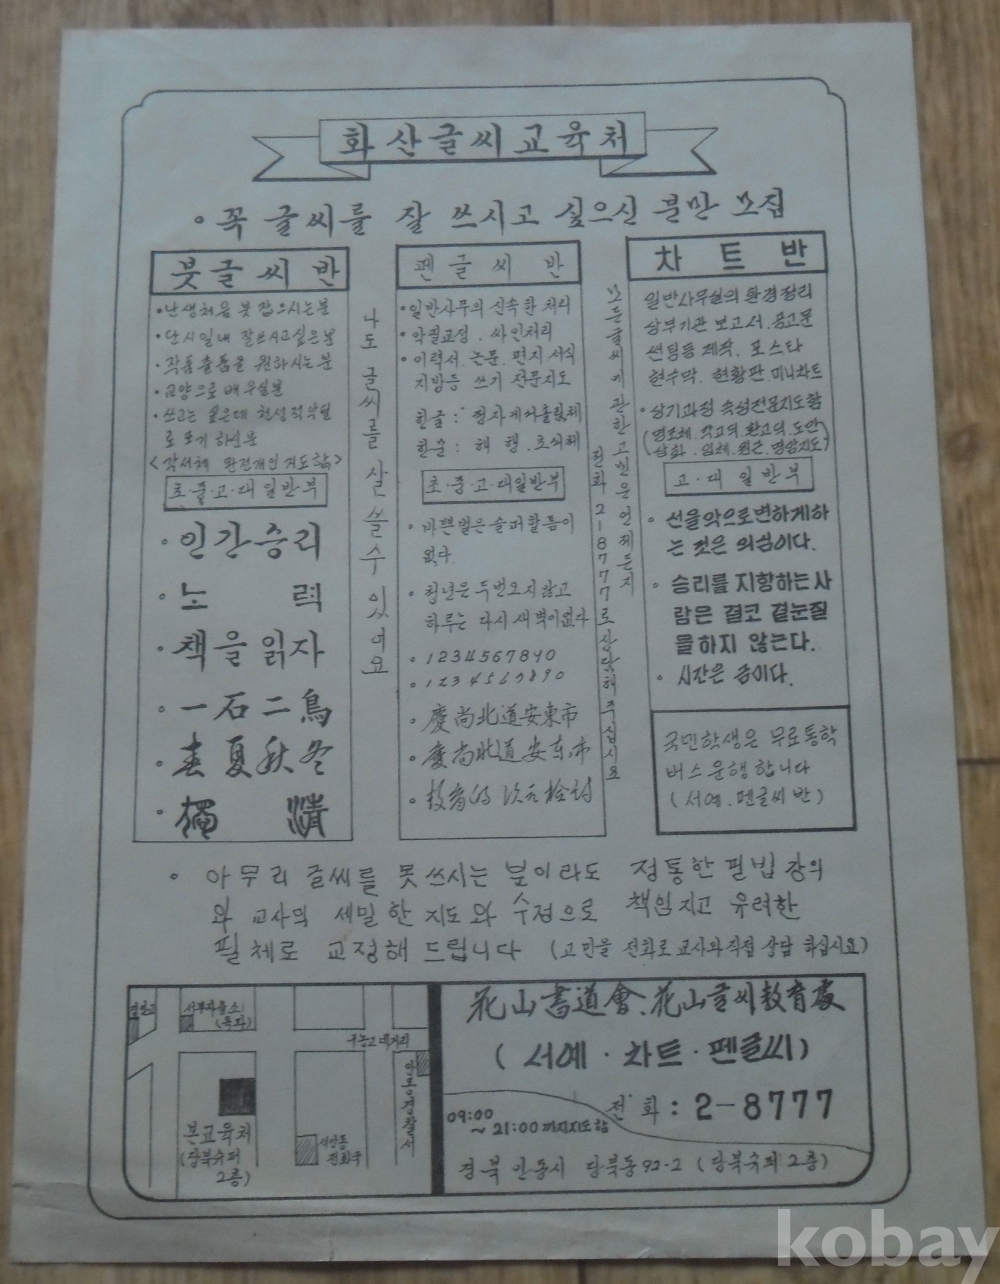 화산글씨교육처
• 꼭 글씨를 잘 쓰시고 싶으신 분만 모집
붓글씨반
• 난생처음 붓 잡으시는분
• 단시일내 잘쓰시고싶은분
• 작품출품을 원하시는분
• 교양으로 배우실분
• 쓰고는 싶은데 천성적 악필
로 포기 하신분
<각서체 완전개인지도함>
초·중·고·대일반부
• 인간승리
• 노력
• 책을 읽자
• 一石二鳥
• 春夏秋冬
나도 글씨를 잘 쓸 수 있어요
펜글씨반
• 일반사무의 신속한 처리
• 악필교정. 싸인처리
• 이력서. 논문. 편지 서식
지방등 쓰기 전문지도
한글: 정자체와흘림체
한문: 해. 행. 초서체
초·중·고·대일반부
• 바쁜벌은 슬퍼할 틈이
없다.
• 청년은 두번오지않고
하루는 다시 새벽이없다
• 1234567890
• 1234567890
• 慶尚北道安東市
• 慶尚北道安东市
모든글씨에 관한 고민은 언제든지
전화 2-8777로 상담해 주십시요
차트반
일반사무실의 환경정리
상부기관 보고서. 공고문
썬팅등 제작. 포스타
현수막. 현황판. 미니차트
• 상기과정 속성전문지도함
(명조체. 각고딕. 환고딕. 도안
삽화. 입체. 원근. 명암지도)
고·대 일반부
• 선을악으로변하게하
는 것은 의심이다.
• 승리를 지향하는사
람은 결코 곁눈질
을하지 않는다.
• 시간은 금이다.
국민학생은 무료통학
버스운행합니다
(서예. 펜글씨반)
• 아무리 글씨를 못쓰시는 분이라도 정통한 필법 강의
와 교사의 세밀한 지도와 수정으로 책임지고 유려한
필체로 교정해 드립니다 (고민을 전화로 교사와직접 상담 하십시요)
서부파출소
(옥파)
구농고네거리
안동경찰서
본교육처
(당북슈퍼
2층)
서안동
전화국
花山書道會. 花山글씨敎育處
(서예·차트·펜글씨)
전화: 2-8777
09:00
~21:00까지지도함
경북 안동시 당북동 92-2 (당북슈퍼 2층)
kobay